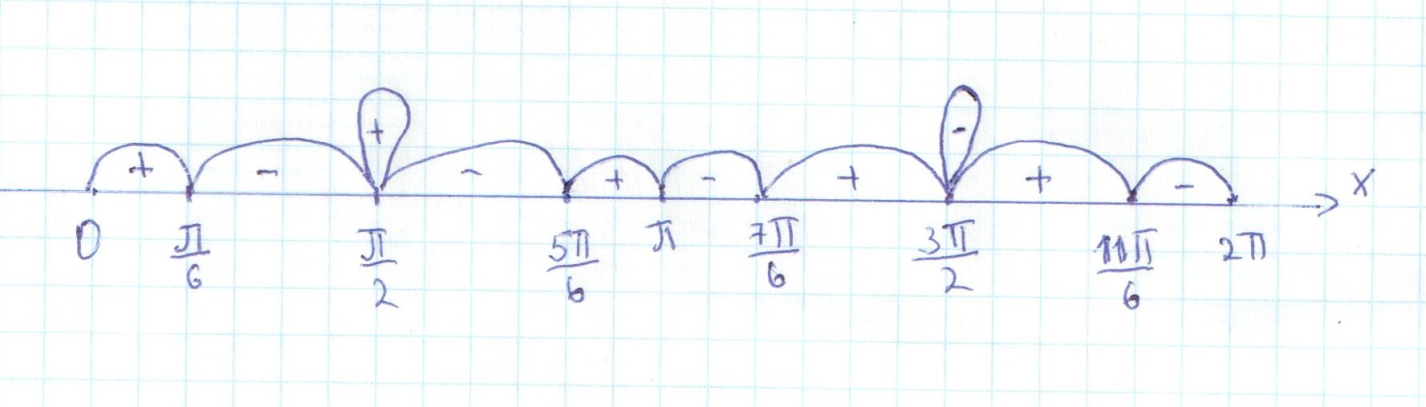 + - + - + - + - + -
0 π/6 π/2 5π/6 π 7π/6 3π/2 11π/6 2π x